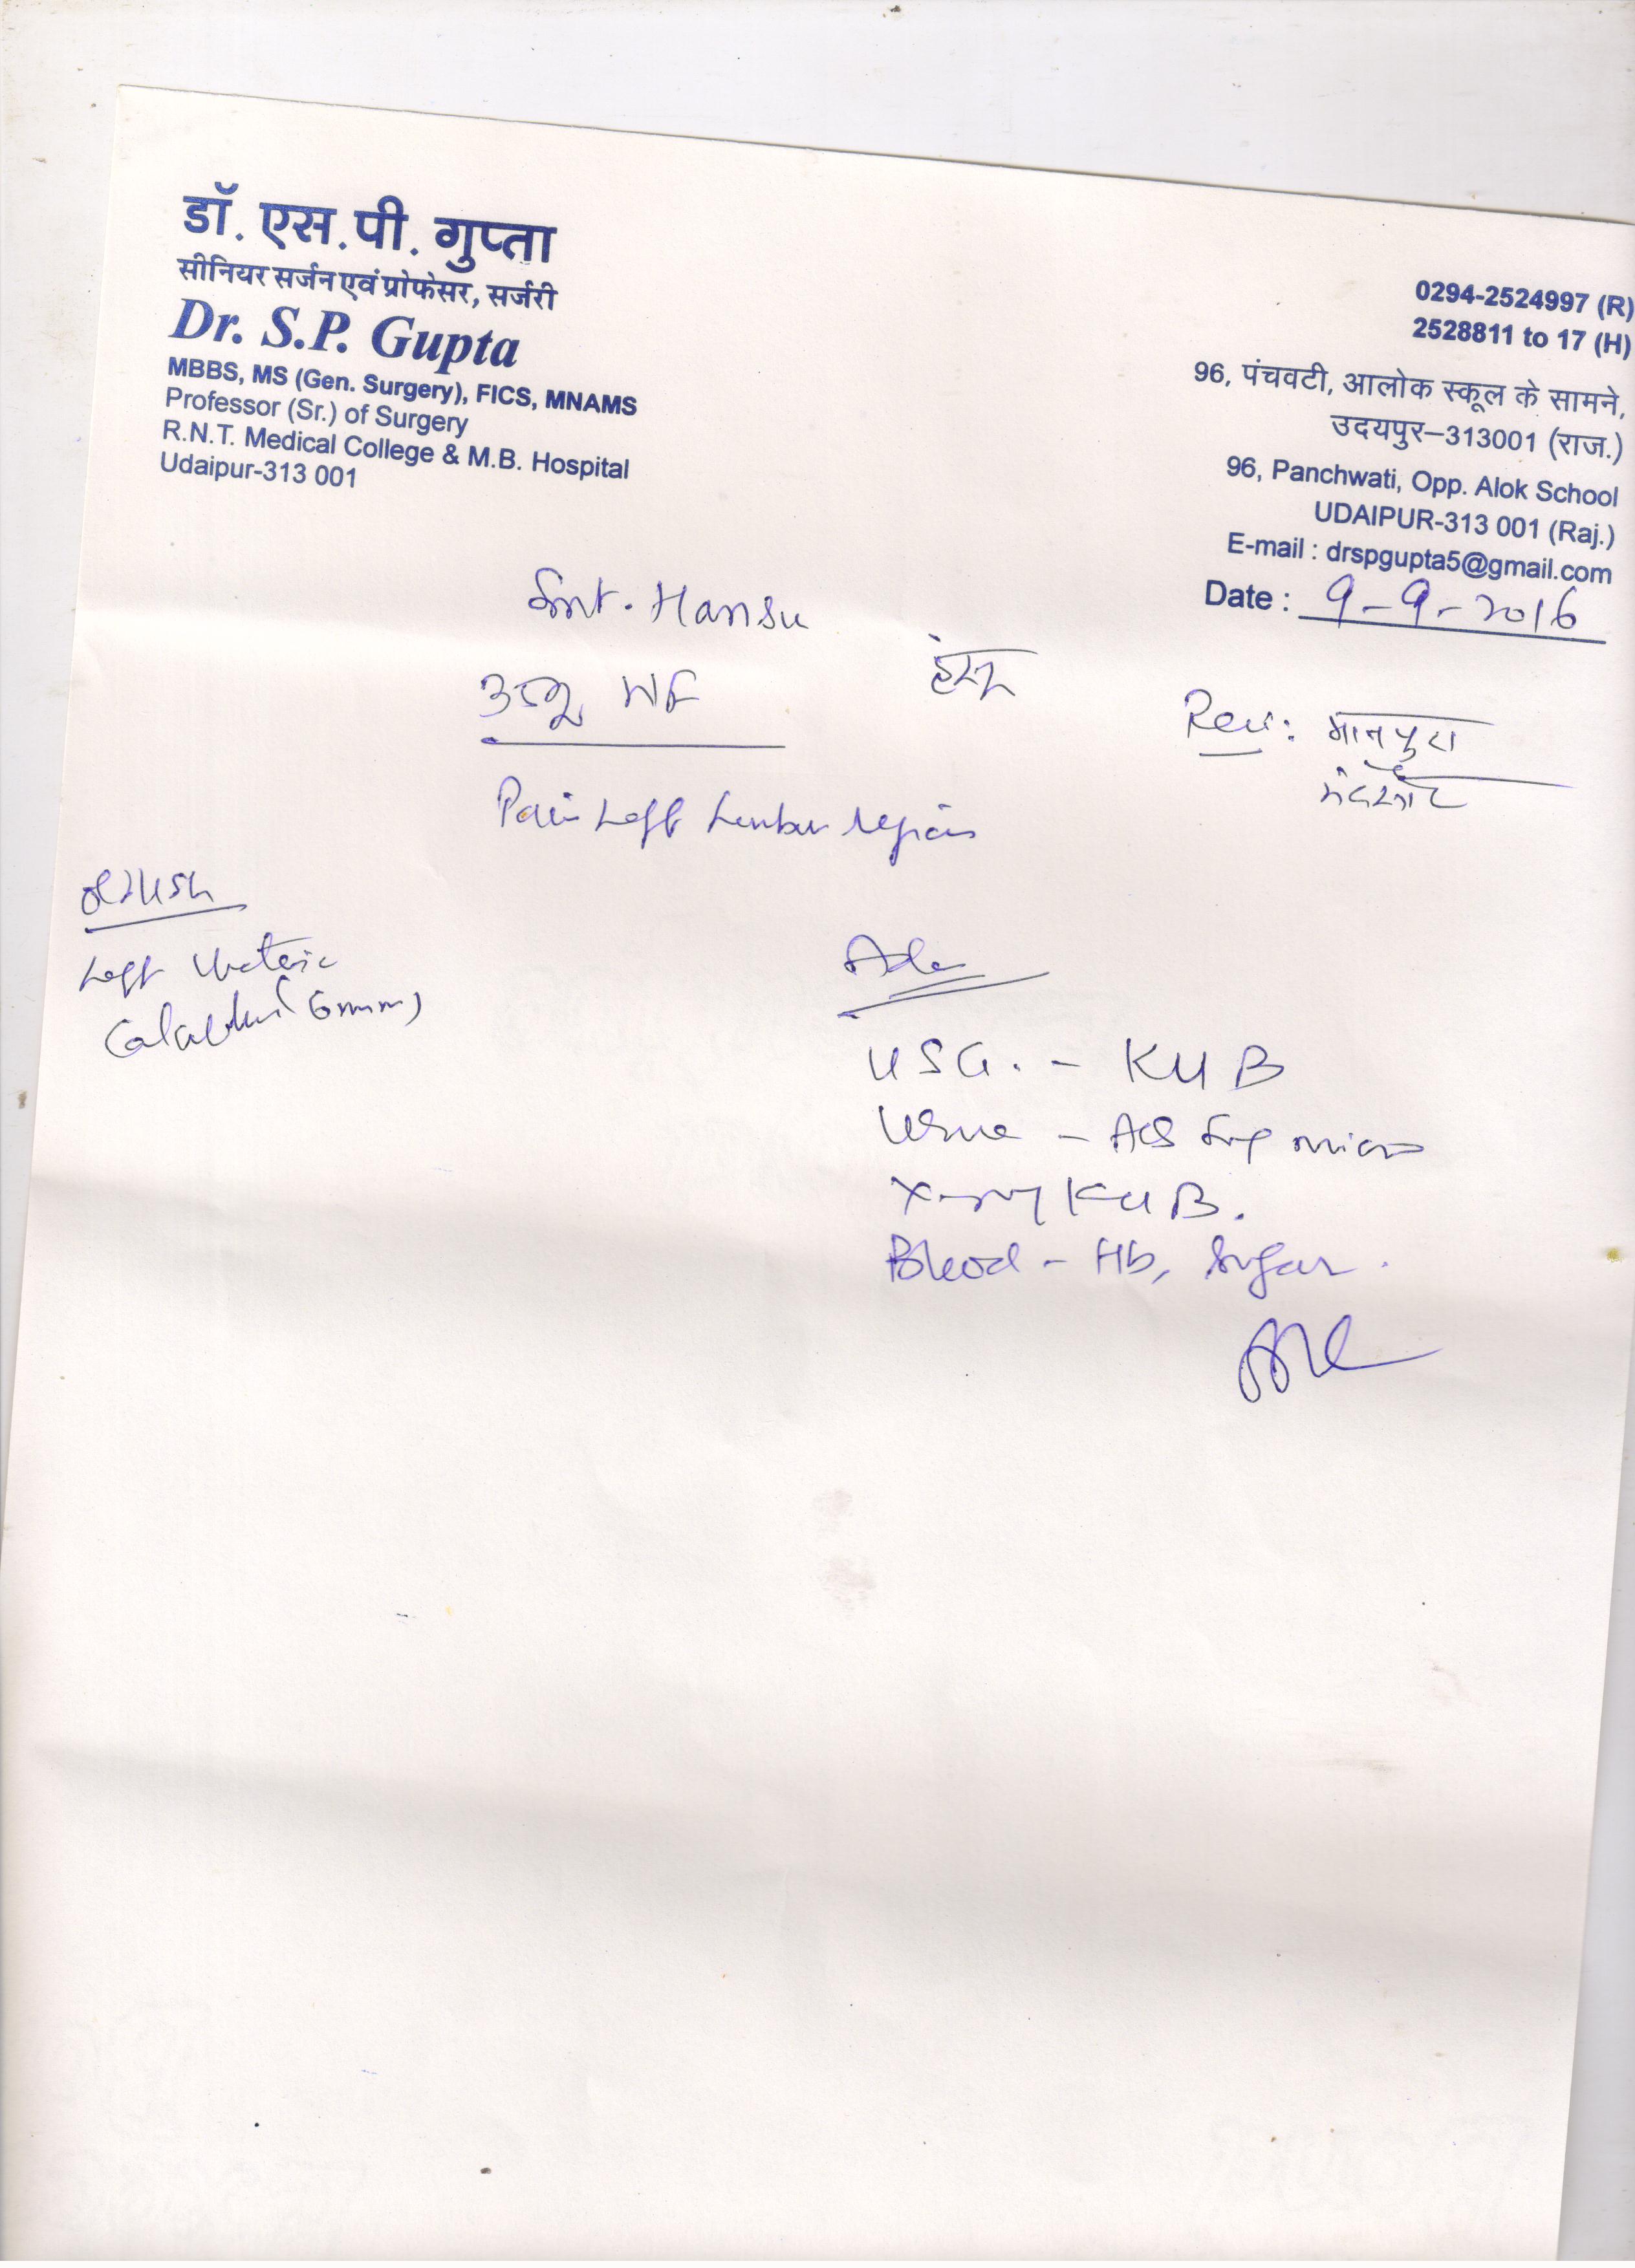 डॉ. एस.पी. गुप्ता
सीनियर सर्जन एवं प्रोफेसर, सर्जरी
Dr. S.P. Gupta
MBBS, MS (Gen. Surgery), FICS, MNAMS
Professor (Sr.) of Surgery
R.N.T. Medical College & M.B. Hospital
Udaipur-313 001
0294-2524997 (R)
2528811 to 17 (H)
96, पंचवटी, आलोक स्कूल के सामने,
उदयपुर–313001 (राज.)
96, Panchwati, Opp. Alok School
UDAIPUR-313 001 (Raj.)
E-mail : drspgupta5@gmail.com
Date : 9-9-2016
Smt. Hansu
हंसू
HF
मानपुरा
मंदसौर
Pain Left Lumbar region
Left Ureteric
Calculus (6mm)
Adv
USG. - KUB
Urine - Alb Sug micro
X-ray KUB.
Blood - Hb, Sugar.